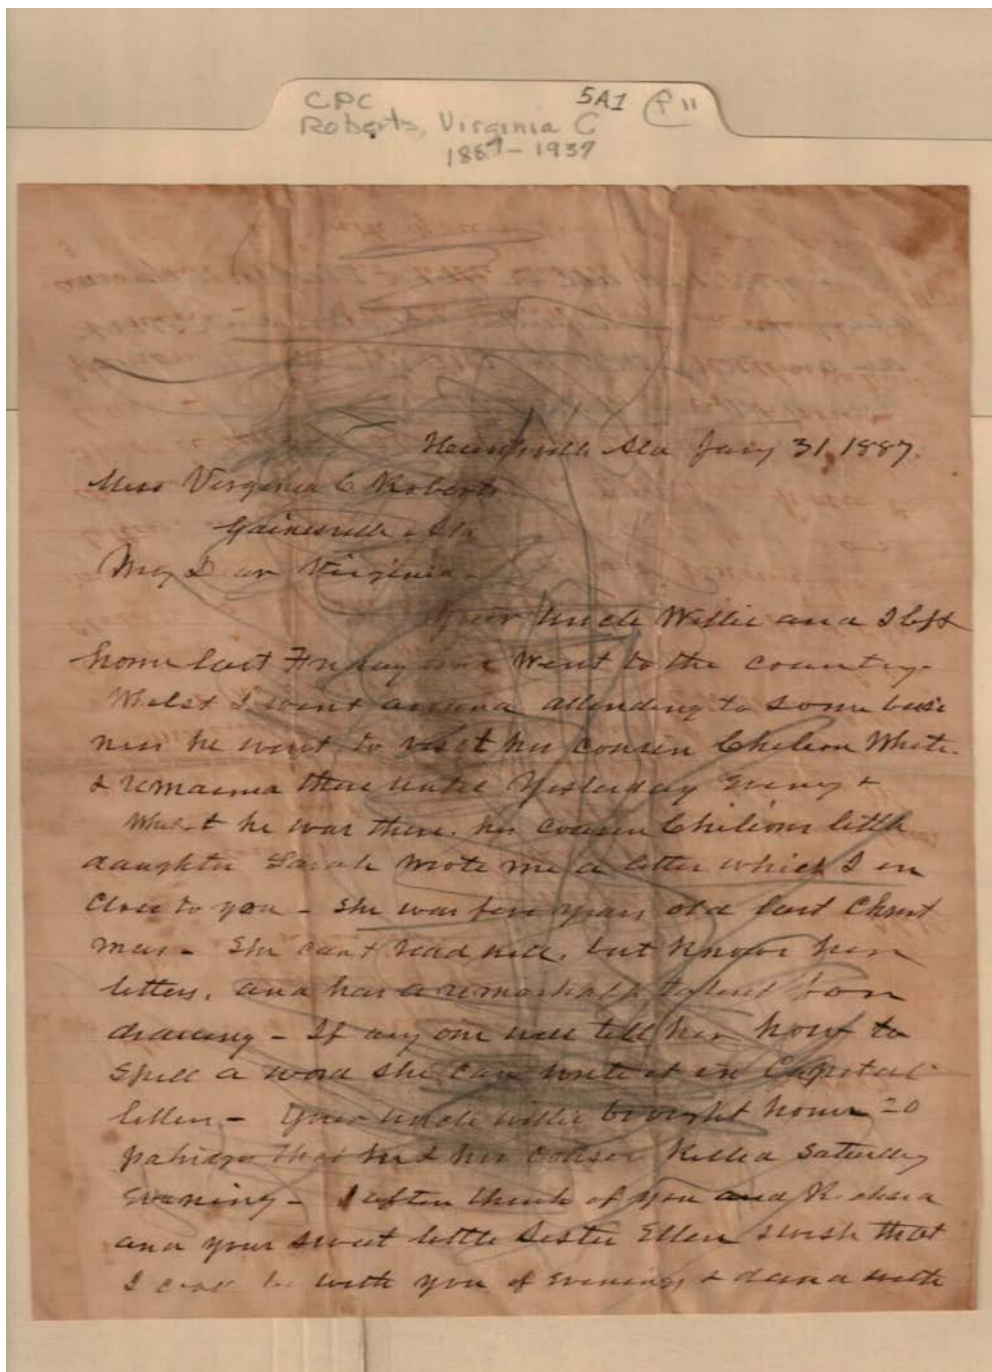 CPC 5A1 f"
Roberts, Virginia C
1887-1937
Huntsville Ala Jany 31, 1887.
Miss Virginia C Roberts
Gainesville. Ala
My Dear Virginia -
Your Uncle Willie and I left
home last Friday and went to the country.
Whilst I went around attending to some busi
ness he went to visit his cousin Chelion White.
& remained there until Yesterday Eveng &
Whilst he was there. his cousin Chilions little
daughter Sarah wrote me a letter which I en
close to you - She was five years old last Christ
mas - She can't read well, but knows her
letters, and has a remarkable talent for
drawing - If any one will tell her how to
spell a word she can write it in Capital
letters - Your Uncle Willie brought home 20
patridges that he & his cousin Killed Saturday
Evening - I often think of you and Richard
and your sweet little Sister Ellen & wish that
I could be with you of Evenings & dance with